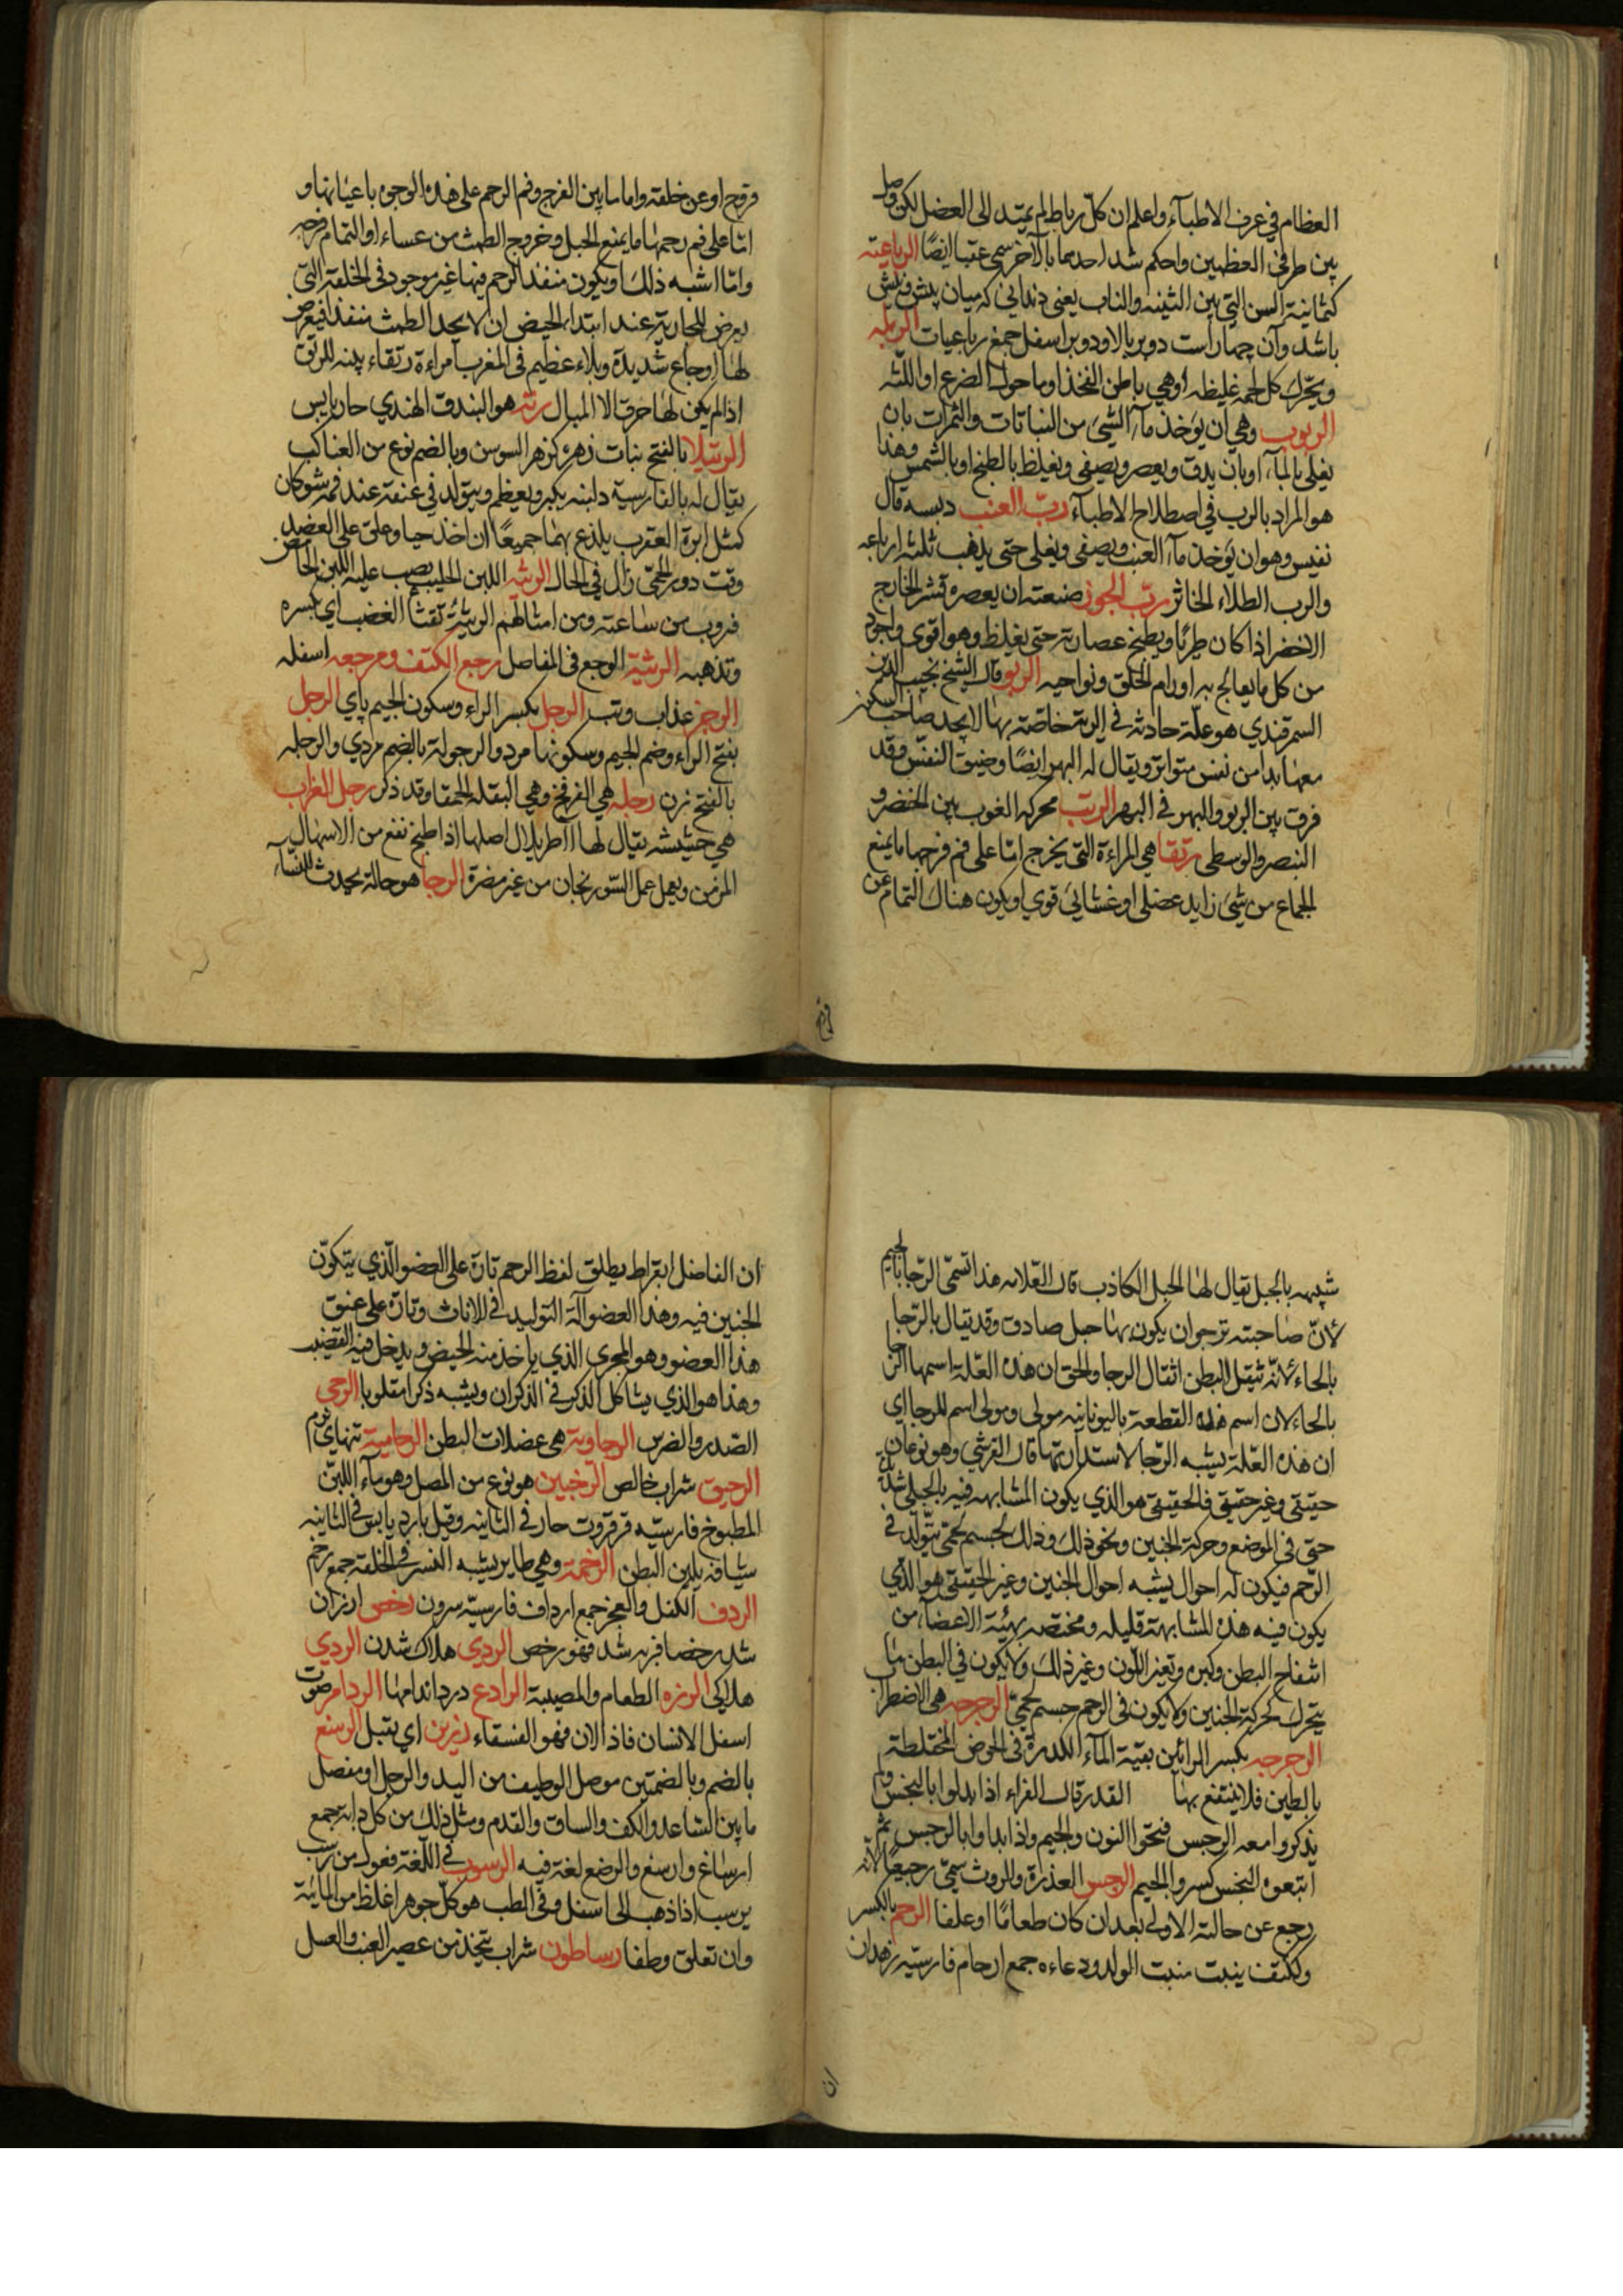 العظام في عرف الاطبآء واعلم ان كلّ رباط لم يمتد الى العضل لكن وصل
بين طرفي العظمين واحكم شد احدهما بالآخر سمى عقبا ايضًا الرباعيته
كثمانية السن التي بين الثنيه والناب يعنى دندانى كه ميان پيش ونيش
باشد وآن چهار است دو بر بالا ودو بر اسفل جمع رباعيات الربله
ويحّرك كل لحمه غليظه او هي باطن الفخذ او ما حول الضرع او اللثه
الربوب وهي ان يؤخذ مآء الشئ من النباتات والثمرات بان
يغلى بالمآء او بان يدق ويعصر ويصفى ويغلظ بالطبخ او بالشمس وهذا
هو المراد بالرب في اصطلاح الاطبآء ربّ العنب دبسه قال
نفيس وهو ان يؤخذ مآء العنب ويصفى ويغلى حتى يذهب ثلثه ارباعه
والرب الطلاء الخاثر ربّ الجوز صنعته ان يعصر قشر الخارج
الاخضر اذا كان طريًا ويطبخ عصارته حتى يغلظ وهو اقوى واجود
من كل ما يعالج به اورام الحلق ونواحيه الربو قال الشيخ نجيب الدين
السمرقندي هو علّة حادثه في الرية خاصّة بها لا يجد صاحب السكون
معها بدا من نفس متواتر ويقال له البهر ايضًا وضيق النفس وقد
فرق بين الربو والبهر في البهر الرتب محركه الفوت بين الخنصر و
البنصر والوسطى رتقا هي المراءة التي يخرج امّا على فم فرجها ما يمنع
الجماع من شئ زايد عضلي او غشائي قوي او يكون هناك التمام عن
قروح او عن خلقة واما ما بين الفرج وفم الرحم على هذه الوجوه باعيانها و
امّا على فم رحمها ما يمنع الحبل وخروج الطمث من غساء او التمام قرحه
وامّا اشبه ذلك او يكون منفذ الرحم فيها غير موجود في الخلقة التي
يعرض للجارية عند ابتداء الحيض ان لا يجد الطمث منفذا فيعرض
لها اوجاع شديدة وبلاء عظيم في المغرب امراءة رتقاء بينه الرتق
اذا لم يكن لها خرق الا المبال رته هو البندق الهندي حار يابس
الرتيلا بالفتح نبات زهره كزهر السوسن وبالضم نوع من العناكب
يقال له بالفارسية دلبنه يكبر ويعظم ويتولد في عنقه عند فمه شوكان
كمثل ابرة العقرب يلدغ بهما جميعًا ان اخذ حيا وعلق على العضد
وقت دور الحمّى زال في الحال الرثيه اللبن الحليب يصب عليه اللبن الحامض
فيروب من ساعته ومن امثالهم الرثيئة تفثأ الغضب اي تكسره
وتذهبه الرثية الوجع في المفاصل رجع الكتف ومرجعه اسفله
الرجز عذاب وتب الرجل بكسر الراء وسكون الجيم پاي الرجل
بفتح الراء وضم الجيم وسكونها مرد والرجولة بالضم مردي والرجله
بالفتح زن رجله هي الفرفخ وهي البقله الحمقا وقد ذكر رجل الغراب
هي حشيشه يقال لها آاطريلال اصلها اذا طبخ نفع من الاسهال
المزمن ويعمل عمل السّورنجان من غير مضرة الرجا هو حالة يحدث للنسآء
شبيهه بالحبل يقال لها الحبل الكاذب قال العلامه هذا تسمّى الرّجا بالجيم
لانّ صاحبته ترجوان يكون بها حبل صادق وقد يقال بالرّحا
بالحاء لانّه ثقيل البطن اثقال الرحا والحق ان هذه العلّة اسمها الرحا
بالحاء لان اسم هذه القطعة باليونانيه مولى ومولى اسم للرحا اي
ان هذه العلّة يشبه الرّحا لاستدارتها قال القرشي وهو نوعان
حقيقى وغير حقيقى فالحقيقى هو الذي يكون المشابهه فيه بالحبلى شديدة
حتى في الموضع وحركة الجنين ونحو ذلك وذلك لجسم لحمّى يتولّد في
الرّحم فيكون له احوال يشبه احوال الجنين وغير الحقيقى هو الذّي
يكون فيه هذه المشابهة قليله ومختصه بهيئة الاعضاء من
انتفاخ البطن وكبره وتغير اللّون وغير ذلك ولا يكون في البطن ما
يتحرك كحركة الجنين ولا يكون في الرحم جسم لحمّى الرجرجه هي الاضطراب
الرجرجه بكسر الرائين بقيّة المآء الكدرة في الحوض المختلطة
بالطين فلا ينتفع بها القدر قال الفراء اذا بدلوا بالنجس ولم
يذكروا معه الرجس فتحوا النون والجيم واذا بداوا بالرجس ثم
اتبعوه النجس كسروا الجيم الرجس العذرة والروث سمّى رجيعًا لانّه
رجع عن حالته الاولى بعد ان كان طعامًا او علفا الرحم بالكسر
وككتف بنيت منبت الولد ودعاءه جمع ارحام فارسيّه زهدان
ان الفاضل ابقراط يطلق لفظ الرحم تارة على العضو الّذي يتكوّن
الجنين فيه وهذا العضو آلة التوليد في الاناث وتارة على عنق
هذا العضو وهو المجرى الذي ياخذ منه الحيض ويدخل فيه القضيب
وهذا هو الذي يشاكل الذكر في الذكران ويشبه ذكرا مقلوبا الرحى
الصّدر والضرس الرحاوية هي عضلات البطن الرحامية تنهاى نرم
الرحيق شراب خالص الرّخبين هو نوع من المصل وهو مآء اللبن
المطبوخ فارسيّه قرقروت حار في الثانيه وقيل بارد يابس في الثانيه
شيافه يلين البطن الرخمة وهي طاير يشبه النسر في الخلقة جمع رخم
الردف الكفل والعجز جمع ارداف فارسيّه سرون رخص ارزان
شد رخصا فربه شد فهو رخص الردى هلاك شدن الردي
هلاكى الرزه الطعام والمصيبة الرادع درد اندامها الردام صوت
اسفل الانسان فاذا الان فهو الفسقاء رزين اي يقبل الرسغ
بالضم وبالضمتين موصل الوظيف من اليد والرجل او مفصل
ما بين السّاعد والكف والساق والقدم ومثل ذلك من كل دابه جمع
ارساغ وارسغ والرضع لغة فيه الرسوب في اللّغة فعول من رسب
يرسب اذا ذهب الى اسفل وفي الطب هو كلّ جوهر اغلظ من المائية
وان تعلق وطفا رساطون شراب يتّخذ من عصير العنب والعسل